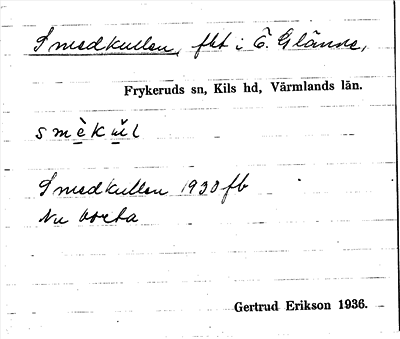 Smedkullen, fht i Ö. Glänne,
Frykeruds sn, Kils hd, Värmlands län.
smèkŭl
Smedkullen 1930 fb
Nu borta
Gertrud Erikson 1936.